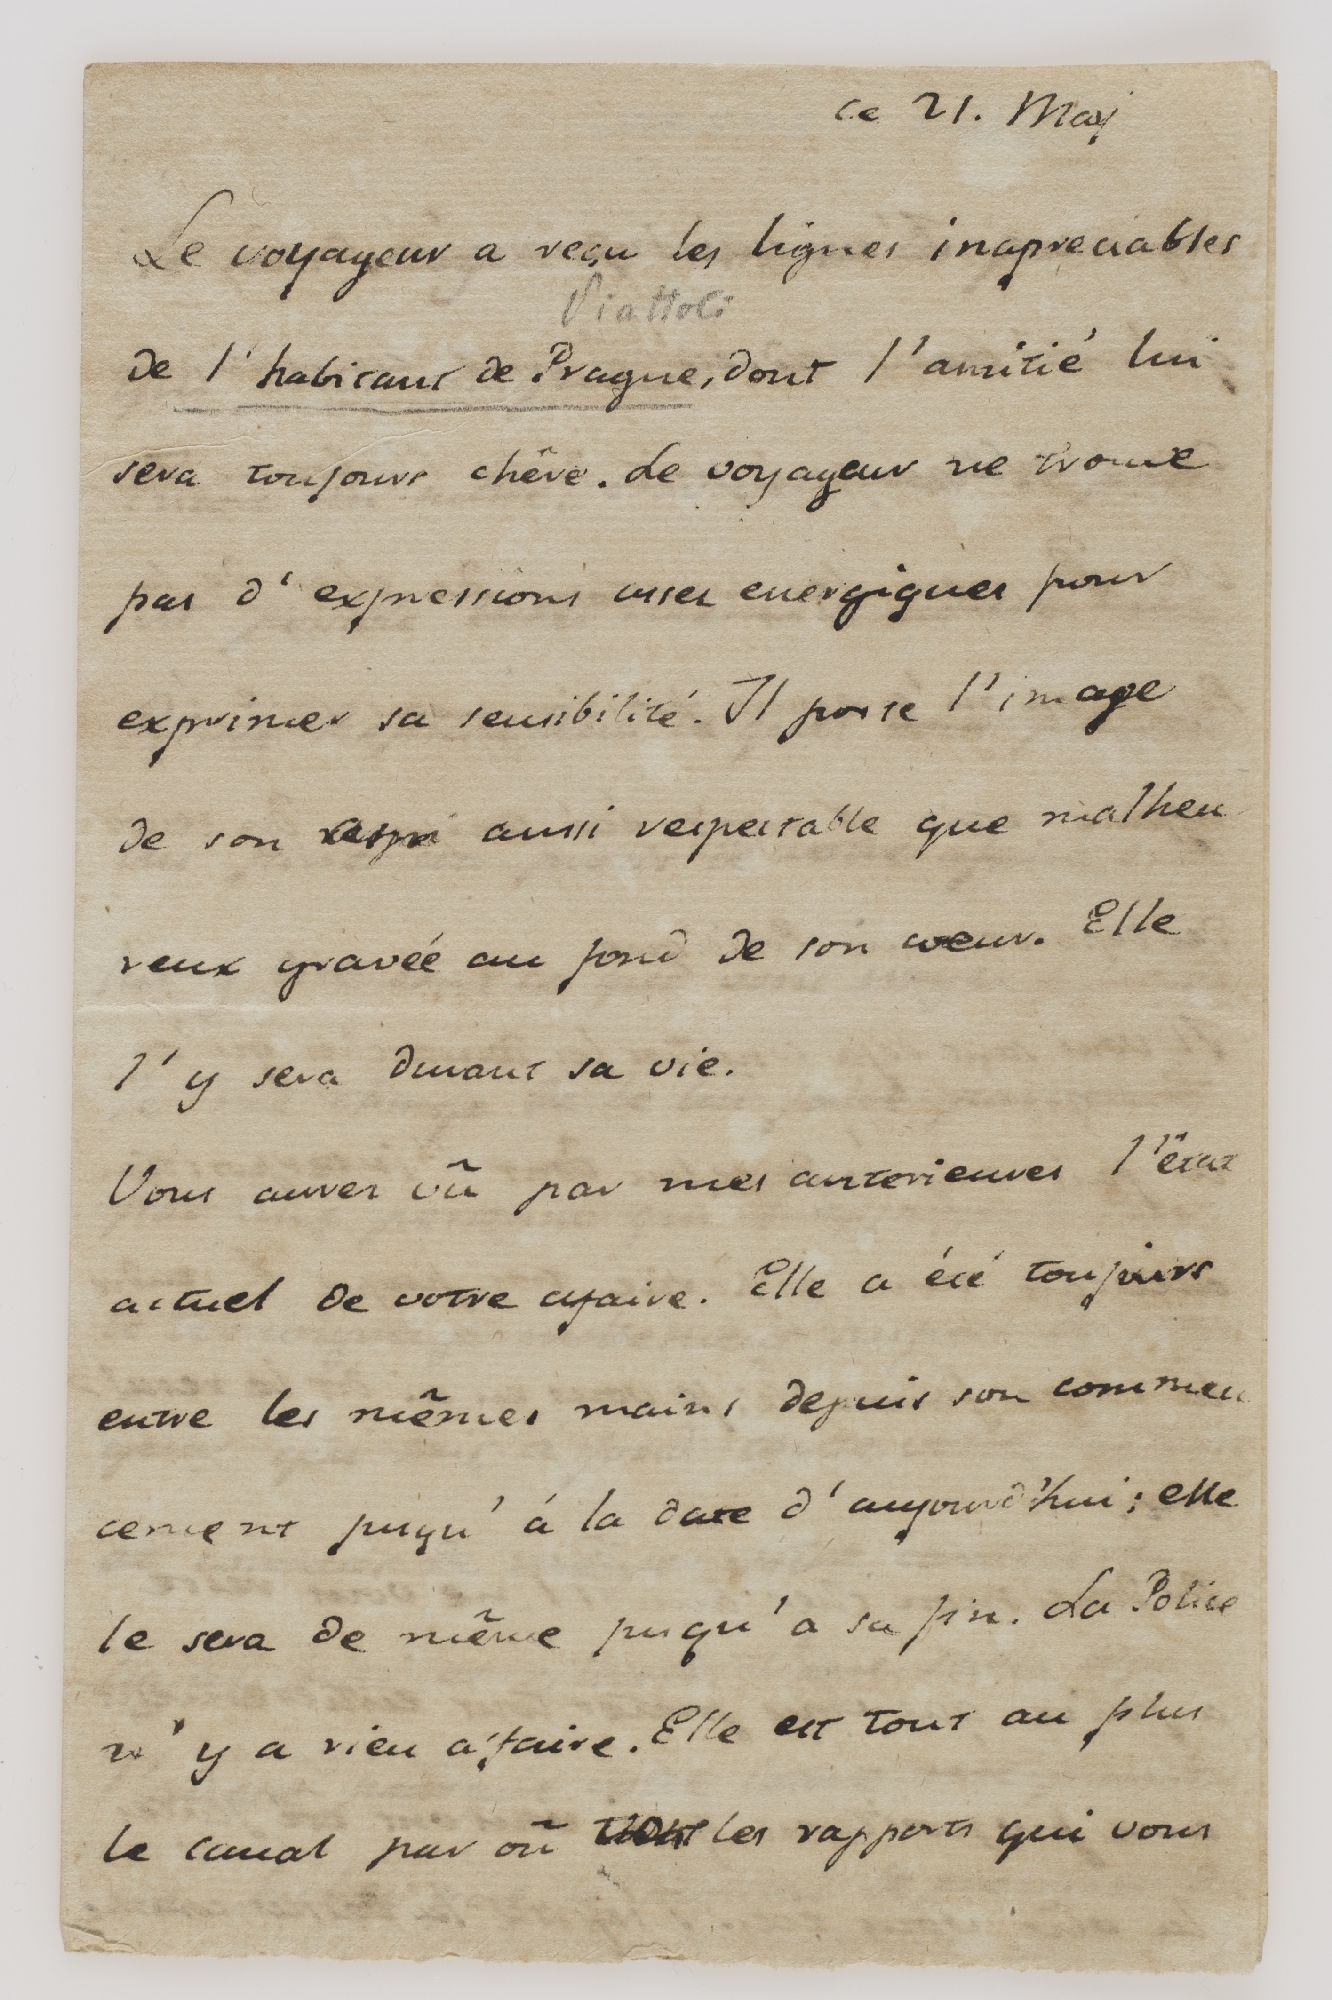 ce 21. May
Le voyageur a reçu les lignes inapreciables
Piattoli
de l'habitant de Prague, dont l'amitié lui
sera toujours chêre. Le voyageur ne trouve
pas d'expressions assez energiques pour
exprimer sa sensibilité. Il porte l'image
de son aussi respectable que malheu
reux gravée au fond de son coeur. Elle
l'y sera durant sa vie.
Vous aurez vû par mes anterieures l'état
actuel de votre afaire. Elle a été toujours
entre les mêmes mains depuis son commen
cement jusqu'á la date d'aujourd'hui; elle
le sera de même jusqu'a sa fin. La Police
n'y a rien a faire. Elle est tout au plus
le canal par où les rapports qui vous